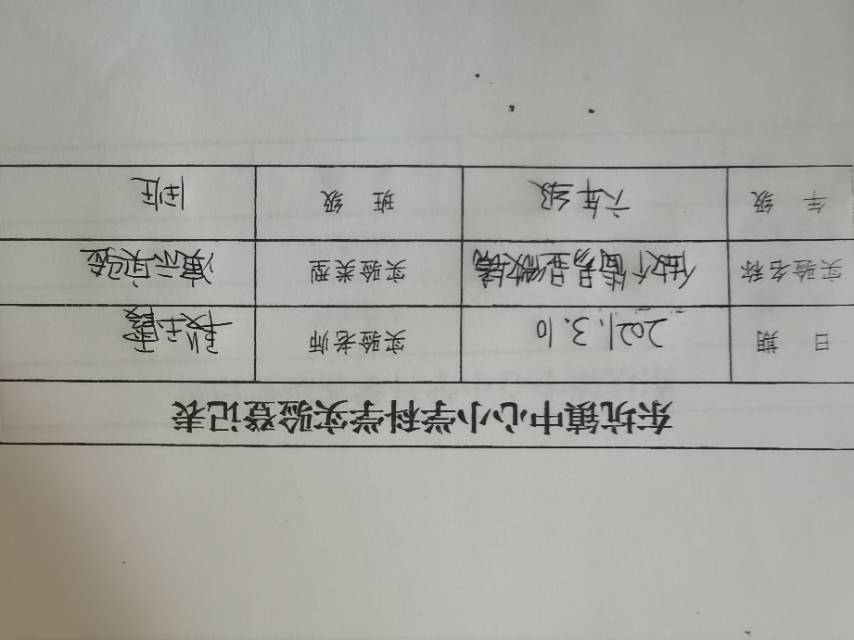 东坑镇中心小学科学实验登记表
日 期 2021.3.10 实验老师 玉霞
实验名称 做个简易显微镜 实验类型 演示实验
年 级 六年级 班 级 班